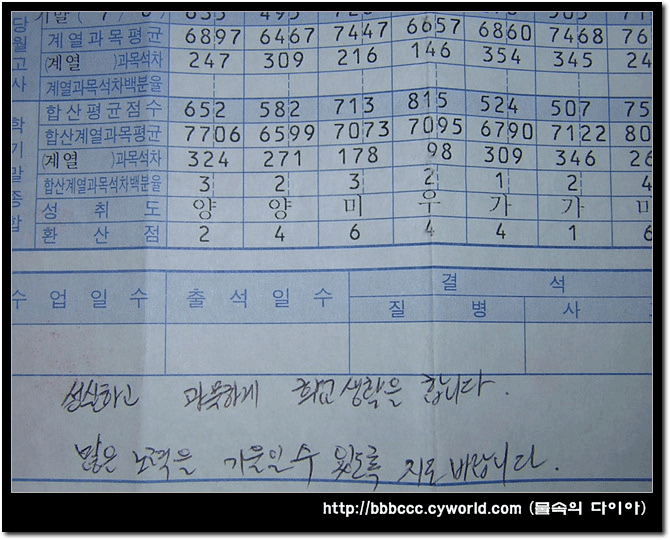 계열과목평균 6897 6467 7447 6657 6860 7468 76
(계열 )과목석차 247 309 216 146 354 345 24
계열과목석차백분율
합산평균점수 652 582 713 815 524 507 75
합산계열과목평균 7706 6599 7073 7095 6790 7122 80
(계열 )과목석차 324 271 178 98 309 346 26
합산계열과목석차백분율 3 2 3 2 1 2 4
성취도 양 양 미 우 가 가
환산점 2 4 6 4 4 1 6
수업일수 출석일수 결석
질병 사
성실하고 과묵하게 학교생활을 합니다.
많은 노력을 기울일수 있도록 지도바랍니다.
http://bbbccc.cyworld.com (돌속의 다이아)